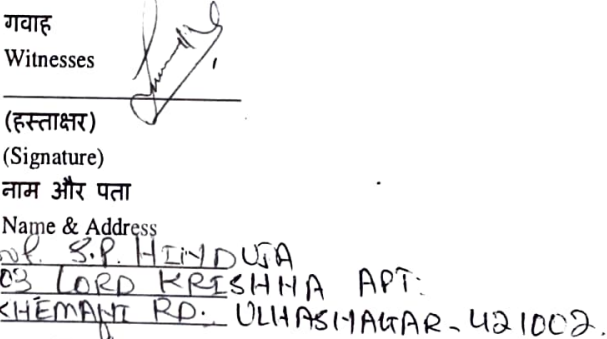 गवाह
Witnesses
(हस्ताक्षर)
(Signature)
नाम और पता
Name & Address
S.P. HINDUJA
03 LORD KRISHNA APT:
KHEMANI RD. ULHASNAGAR - 421002.